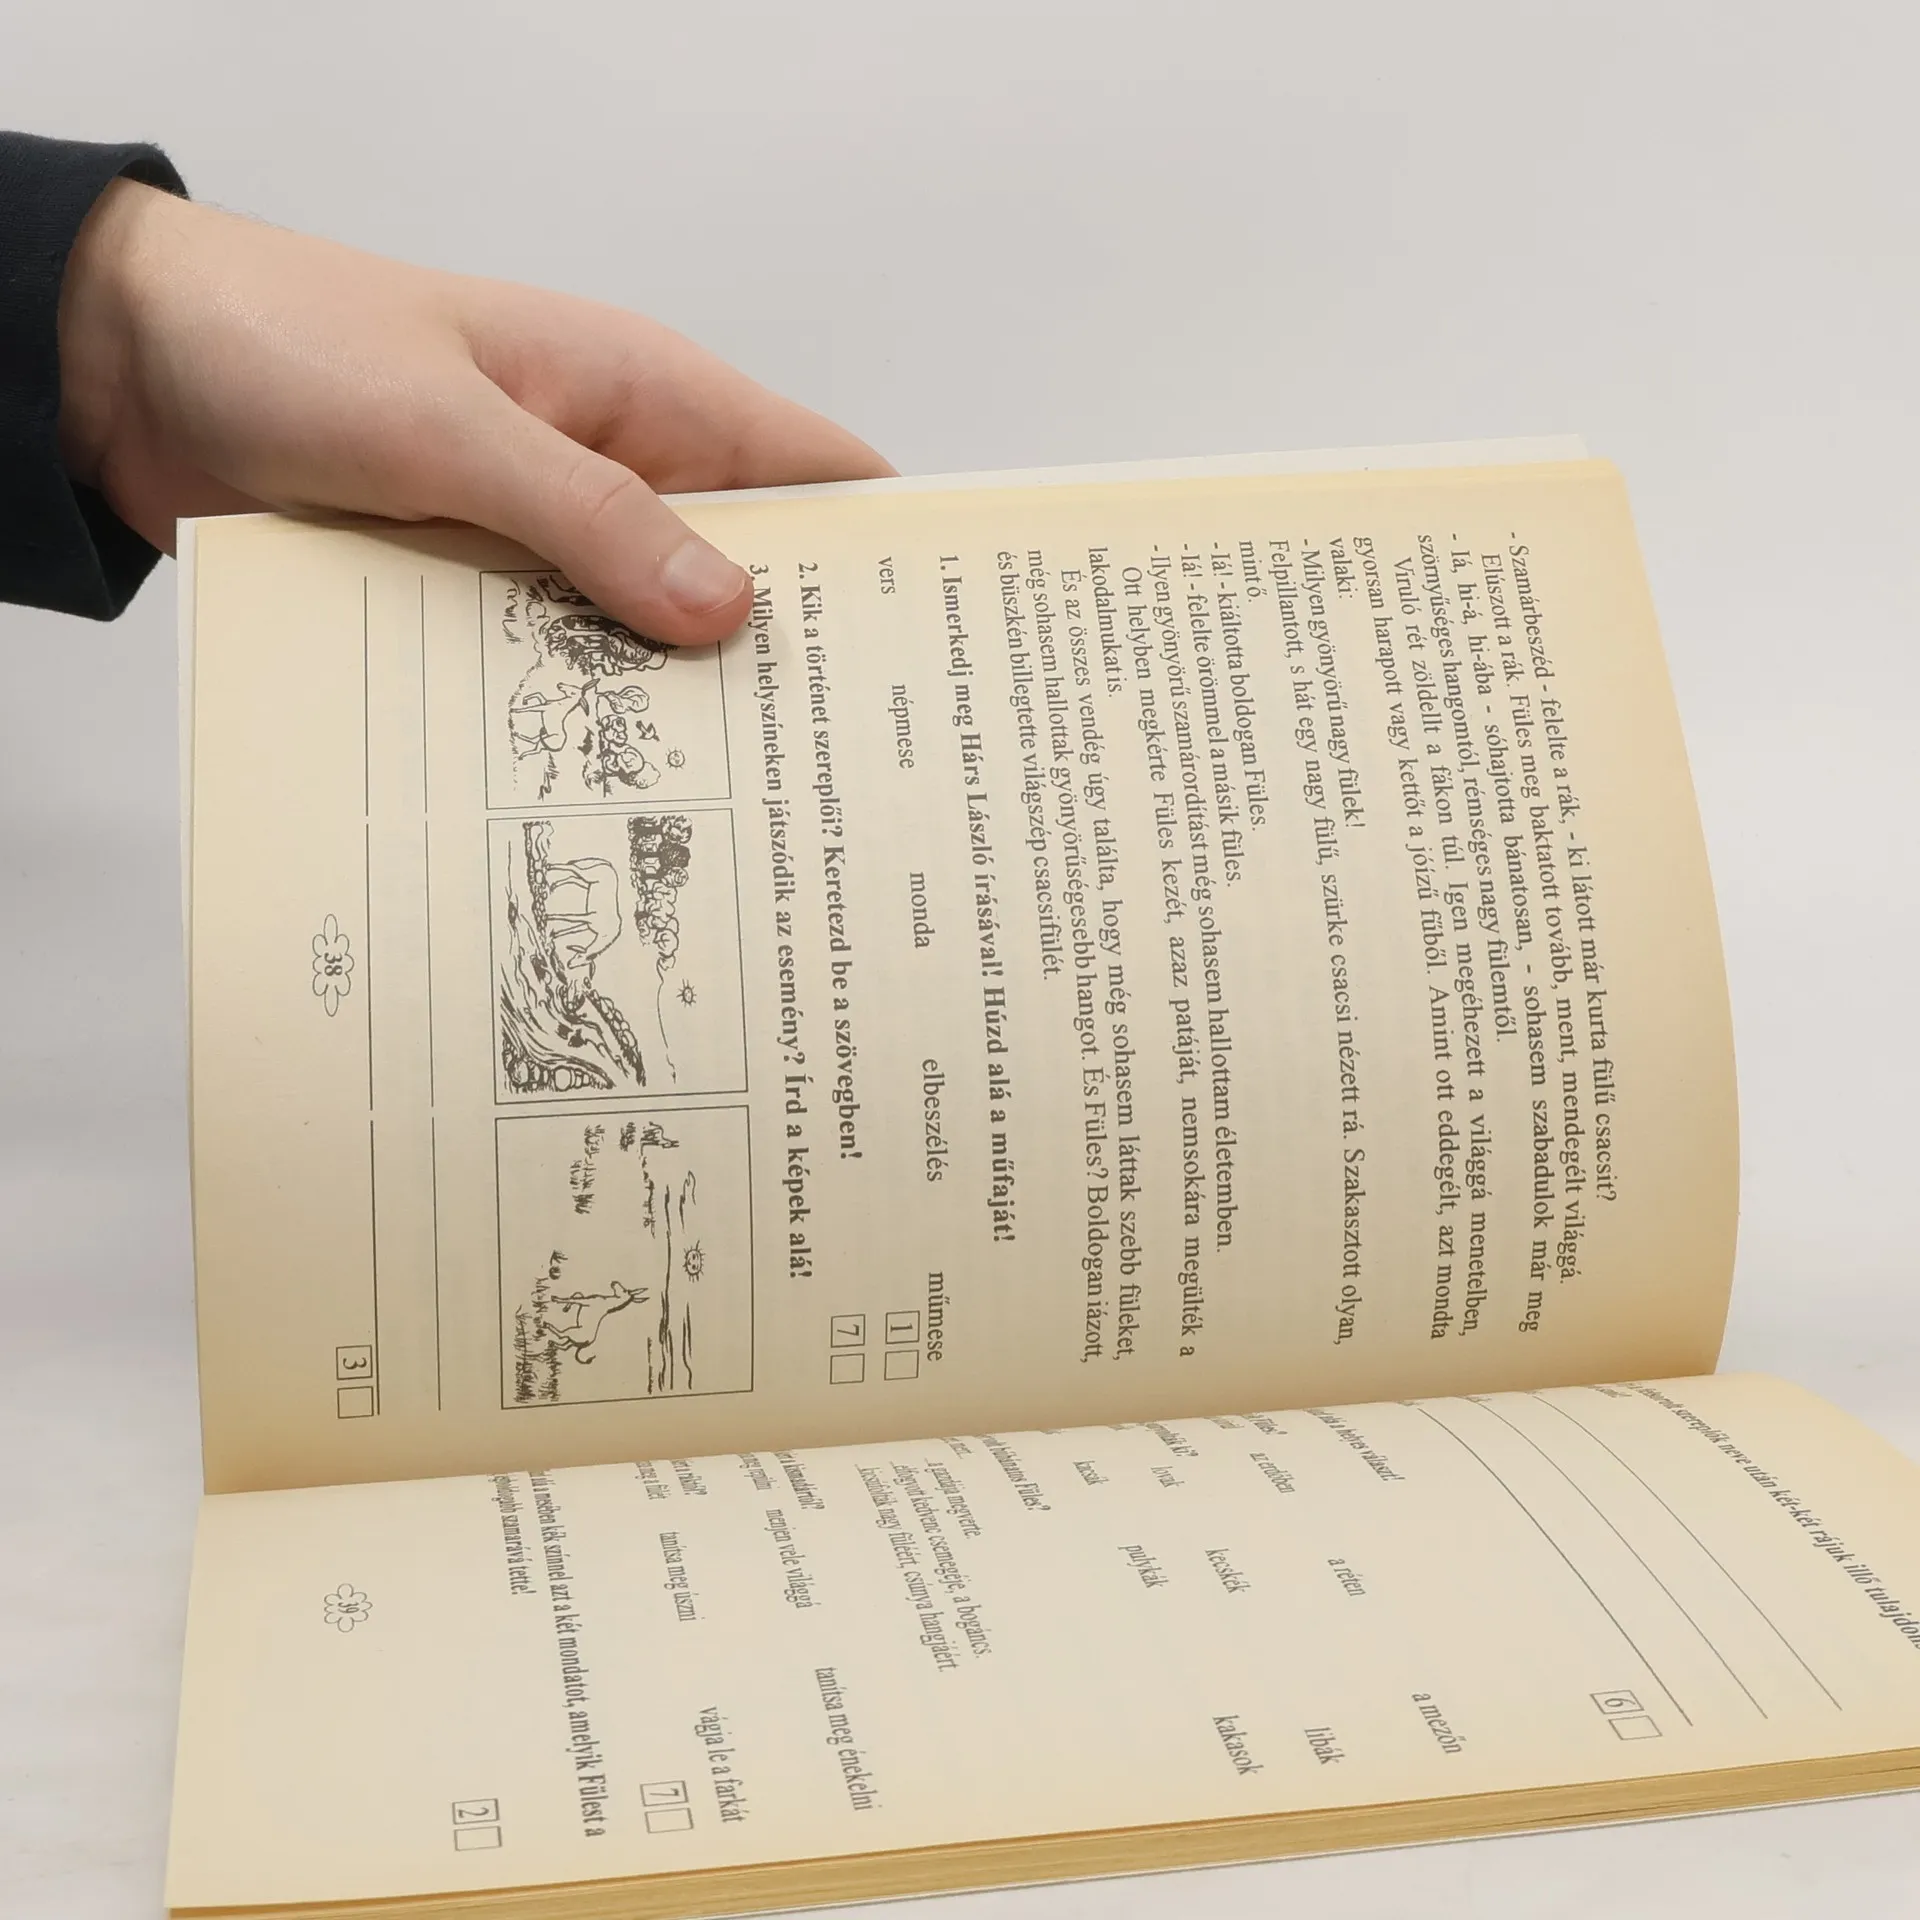 - Szamárbeszéd - felelte a rák, - ki látott már kurta fülű csacsit?
Elúszott a rák. Füles meg baktatott tovább, ment, mendegélt világgá.
- Iá, hi-á, hi-ába - sóhajtotta bánatosan, - sohasem szabadulok már meg
szörnyűséges hangomtól, rémséges nagy fülemtől.
Viruló rét zöldellt a fákon túl. Igen megéhezett a világgá menetelben,
gyorsan harapott vagy kettőt a jóízű fűből. Amint ott eddegélt, azt mondta
valaki:
- Milyen gyönyörű nagy fülek!
Felpillantott, s hát egy nagy fülű, szürke csacsi nézett rá. Szakasztott olyan,
mint ő.
- Iá! - kiáltotta boldogan Füles.
- Iá! - felelte örömmel a másik füles.
- Ilyen gyönyörű szamárordítást még sohasem hallottam életemben.
Ott helyben megkérte Füles kezét, azaz patáját, nemsokára megülték a
lakodalmukat is.
És az összes vendég úgy találta, hogy még sohasem láttak szebb füleket,
még sohasem hallottak gyönyörűségesebb hangot. És Füles? Boldogan iázott,
és büszkén billegtette világszép csacsifülét.
1. Ismerkedj meg Hárs László írásával! Húzd alá a műfaját!
vers népmese monda elbeszélés műmese
1
2. Kik a történet szereplői? Keretezd be a szövegben!
7
3. Milyen helyszíneken játszódik az esemény? Írd a képek alá!
3
38
szereplők neve után két-két rájuk illő
6
alá a helyes választ!
az erdőben a réten a mezőn
ki?
lovak kecskék libák
kacsák pulykák kakasok
búbánatos Füles?
a gazdája megverte.
elfogyott kedvenc csemegéje, a bogáncs.
kicsúfolták nagy füléért, csúnya hangjáért.
a kismadártól?
menjen vele világgá tanítsa meg énekelni
a ráktól?
tanítsa meg úszni vágja le a farkát
7
alá a mesében kék színnel azt a két mondatot, amelyik Fülest a
legboldogabb szamarává tette!
2
39